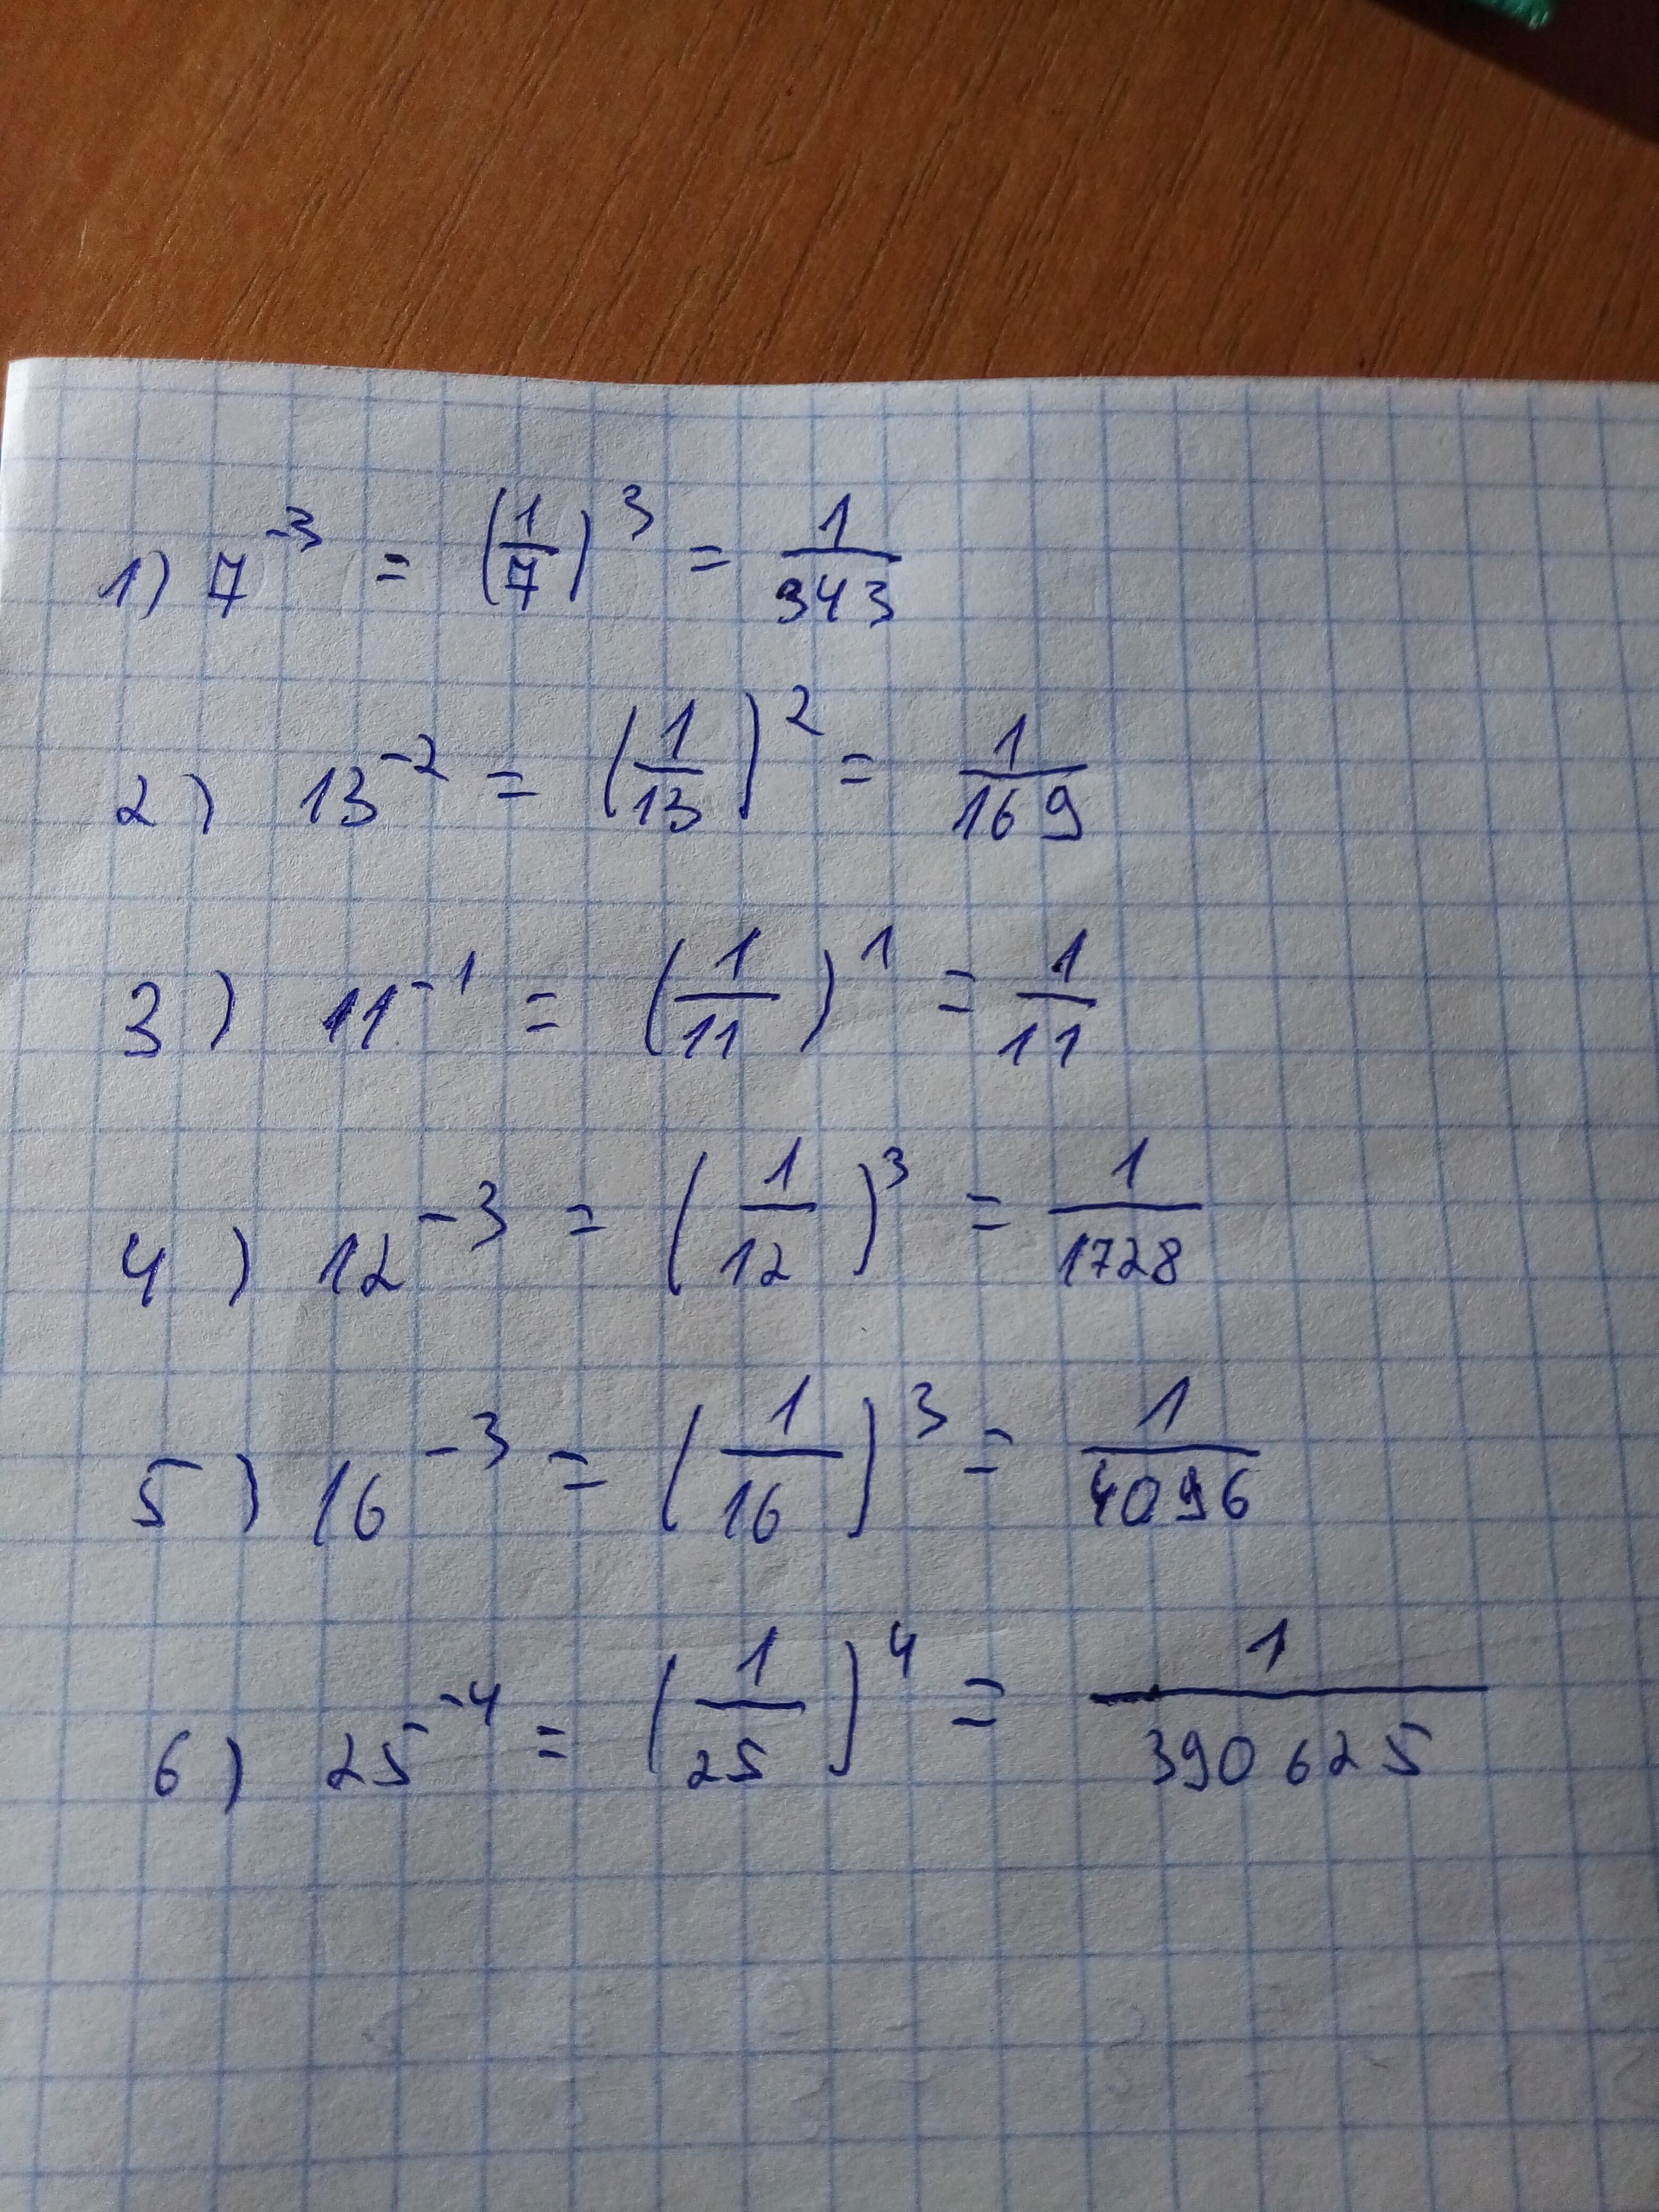 1) 7⁻³ = (1/7)³ = 1/343
2) 13⁻² = (1/13)² = 1/169
3) 11⁻¹ = (1/11)¹ = 1/11
4) 12⁻³ = (1/12)³ = 1/1728
5) 16⁻³ = (1/16)³ = 1/4096
6) 25⁻⁴ = (1/25)⁴ = 1/390625